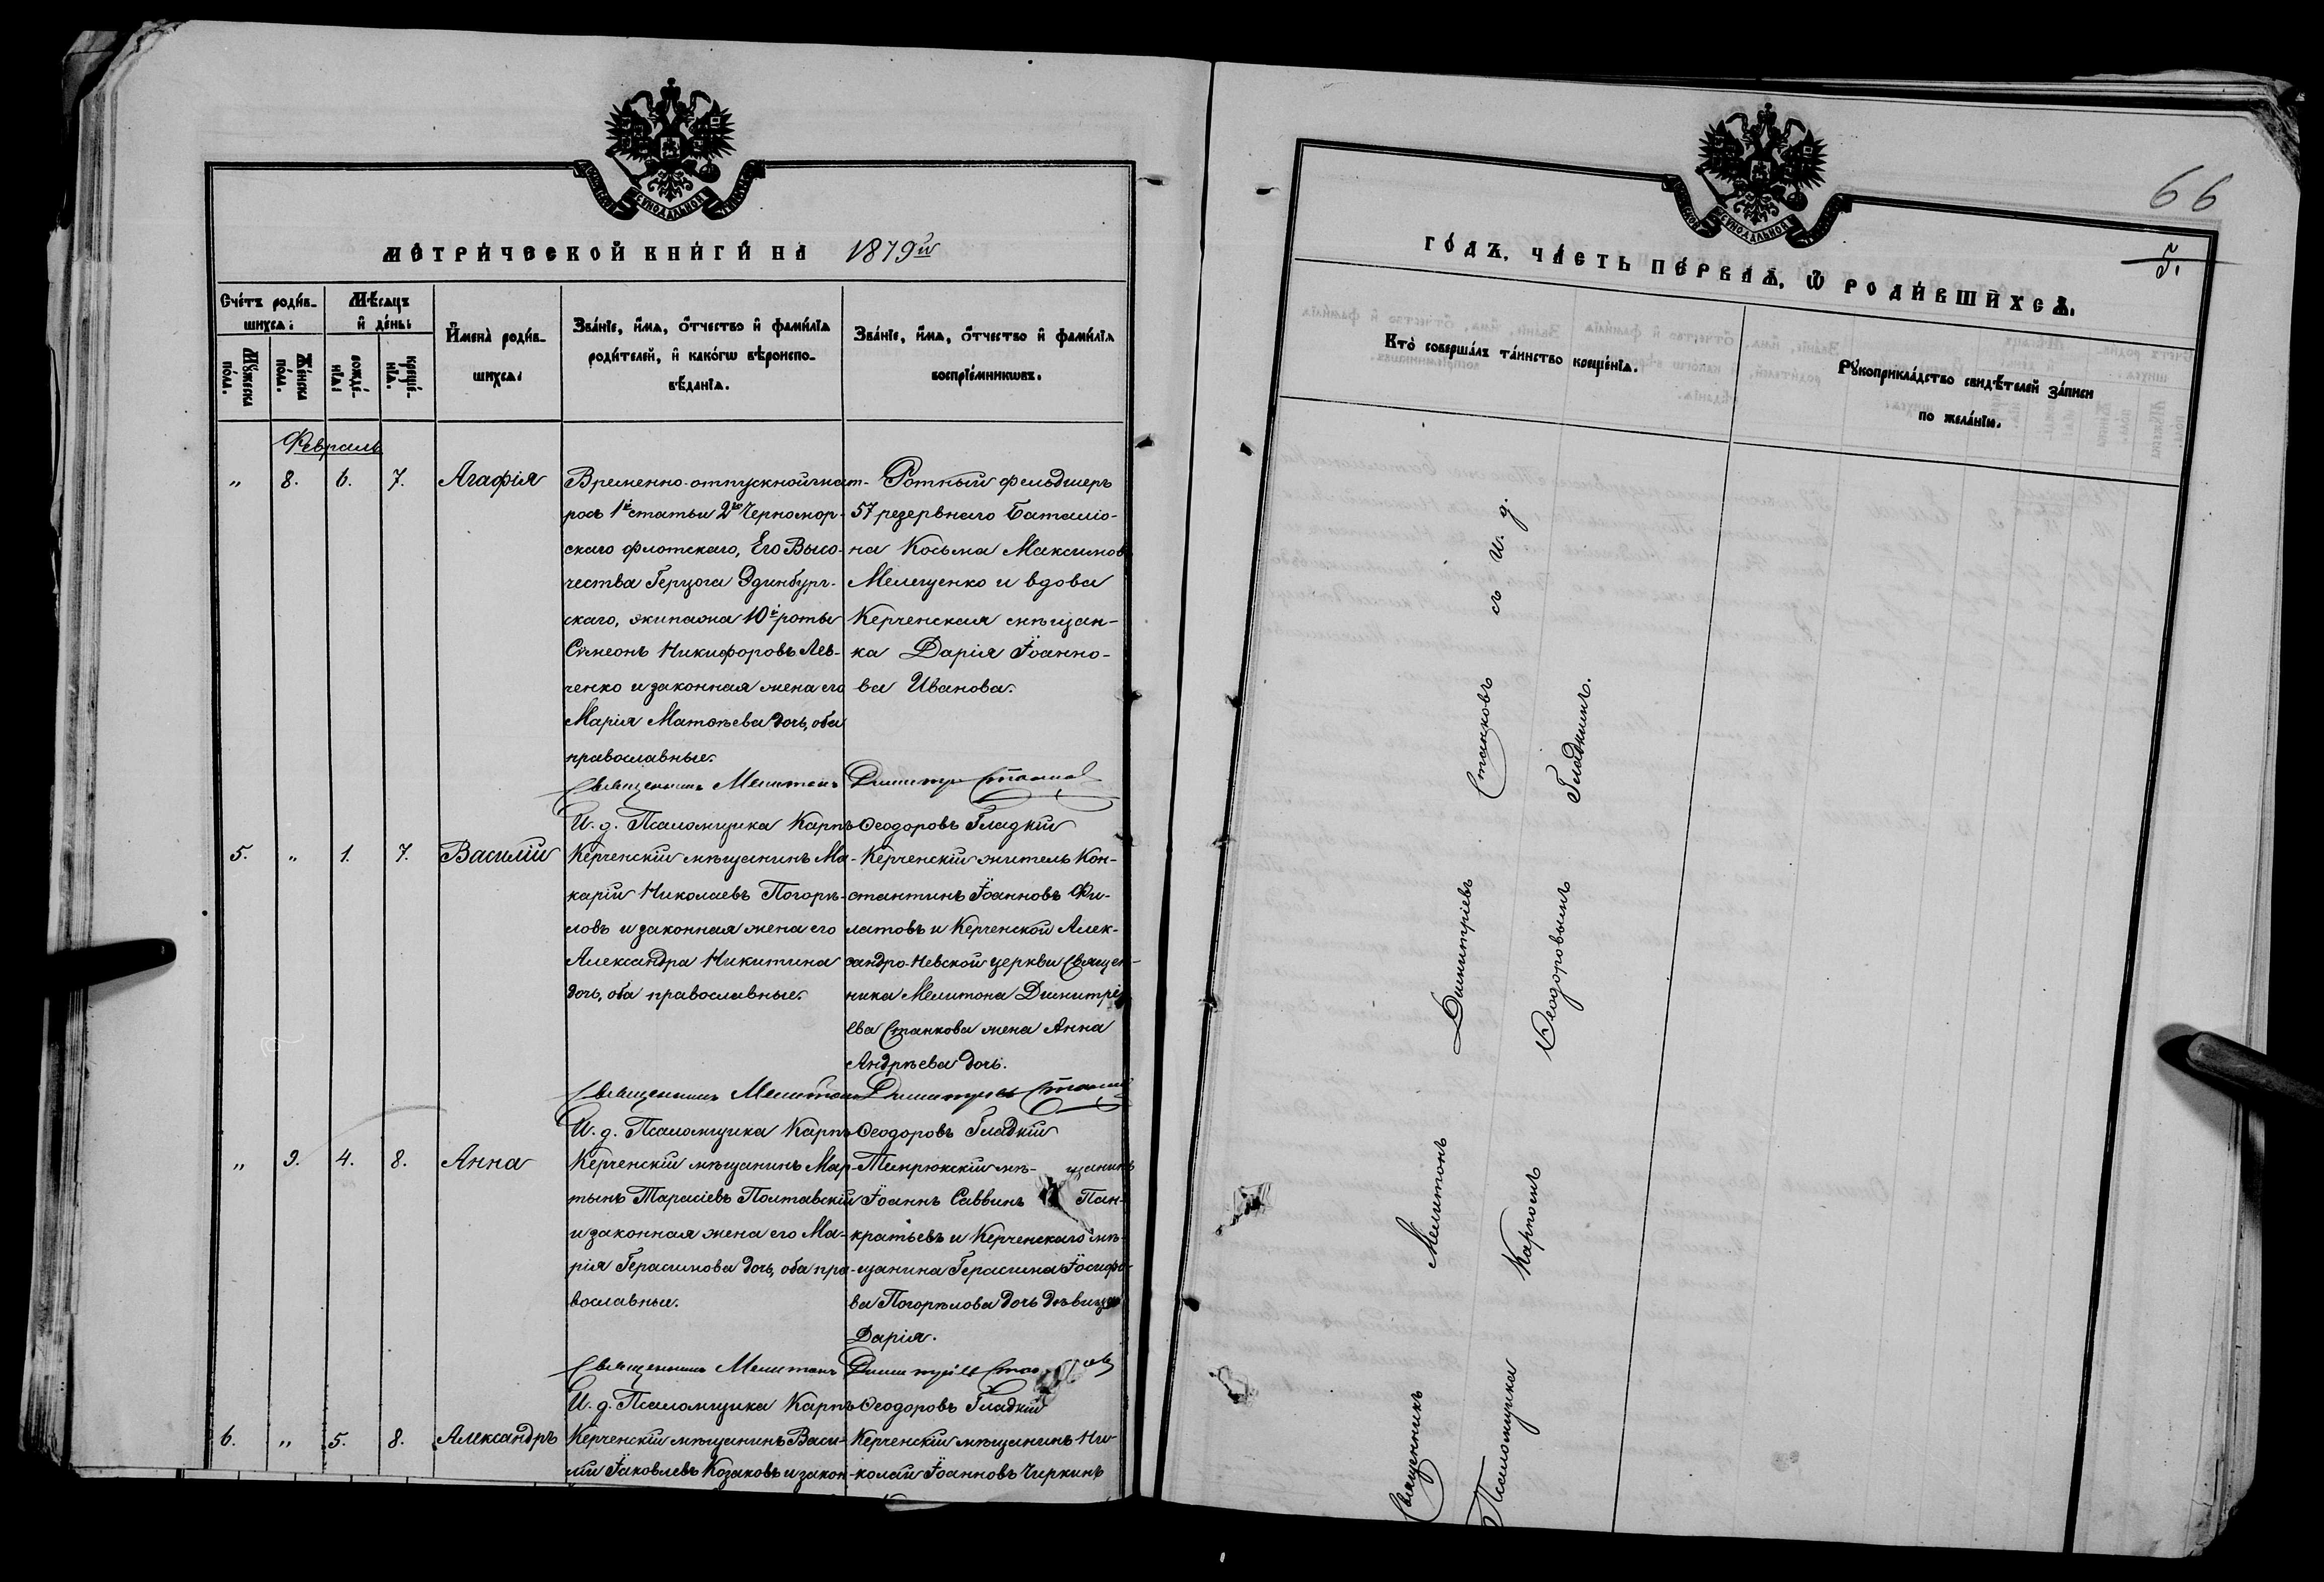 СѴНОДАЛЬНОЙ
МЕТРИ́ЧЕСКОЙ КНИ́ГИ НА 1879й
Сче́тъ роди́в-
шихсѧ:
Мѣ́сѧцъ
и҆ де́нь:
Мꙋ́жеска
по́ла.
Же́нска
по́ла.
рожде́-
нїѧ:
креще́-
нїѧ.
И҆мена̀ роди́в-
шихсѧ:
Зва́нїе, и҆́мѧ, ѻ҆́тчество и҆ фами́лїѧ
роди́телей, и҆ како́гѡ вѣроиспо-
вѣ́данїѧ.
Зва́нїе, и҆́мѧ, ѻ҆́тчество и҆ фами́лїѧ
воспрїе́мникѡвъ.
Февраль
" 8. 6. 7. Агафія
Временно-отпускной мат-
росъ 1й статьи 2го Черномор-
скаго флотскаго, Его Высо-
чества Герцога Эдинбург-
скаго, экипажа 10й роты
Симеонъ Никифоровъ Лев-
ченко и законная жена его
Марія Матѳѣева дочь, оба
православные.
Ротный фельдшеръ
57 резервнаго Баталіо-
на Косьма Максимов
Мелещенко и вдова
Керченская мѣщан-
ка Дарія Іоанно-
ва Иванова.
Священникъ Мелитонъ Димитріевъ Станковъ
И. д. Псаломщика Карпъ Ѳеодоровъ Гладкій
5. " 1. 7. Василій
Керченскій мѣщанинъ Ма-
карій Николаевъ Погорѣ-
ловъ и законная жена его
Александра Никитина
дочь, оба православные.
Керченскій житель Кон-
стантинъ Іоанновъ Фи-
латовъ и Керченской Алек-
сандро-Невской церкви Священ-
ника Мелитона Димитріе
ва Станкова жена Анна
Андрѣева дочь.
Священникъ Мелитонъ Димитріевъ Станковъ
И. д. Псаломщика Карпъ Ѳеодоровъ Гладкій
" 9. 4. 8. Анна
Керченскій мѣщанинъ Мар-
тынъ Тарасіевъ Полтавскій
и законная жена его Ма-
рія Герасимова дочь, оба пра-
вославные.
Темрюкскій мѣ- щанинъ
Іоаннъ Саввинъ Пан-
кратьевъ и Керченскаго мѣ-
щанина Герасима Іосифо-
ва Погорѣлова дочь дѣвица
Дарія.
Священникъ Мелитонъ Димитріевъ Станковъ
И. д. Псаломщика Карпъ Ѳеодоровъ Гладкій
6. " 5. 8. Александръ
Керченскій мѣщанинъ Васи-
лій Іаковлевъ Козаковъ и закон-
Керченскій мѣщанинъ Ни-
колай Іоанновъ Чиркинъ
СѴНОДАЛЬНОЙ
66
5.
ГО́ДЪ. ЧА́СТЬ ПЕ́РВАѦ, Ѡ҆ РОДИ́ВШИХСѦ.
Кто̀ соверша́лъ та́инство креще́нїѧ.
Рꙋкоприкла́дство свидѣ́телей за́писи
по жела́нїю.
Священникъ Мелитонъ Димитріевъ Станковъ съ и. д.
Псаломщика Карпомъ Ѳеодоровымъ Гладкимъ.